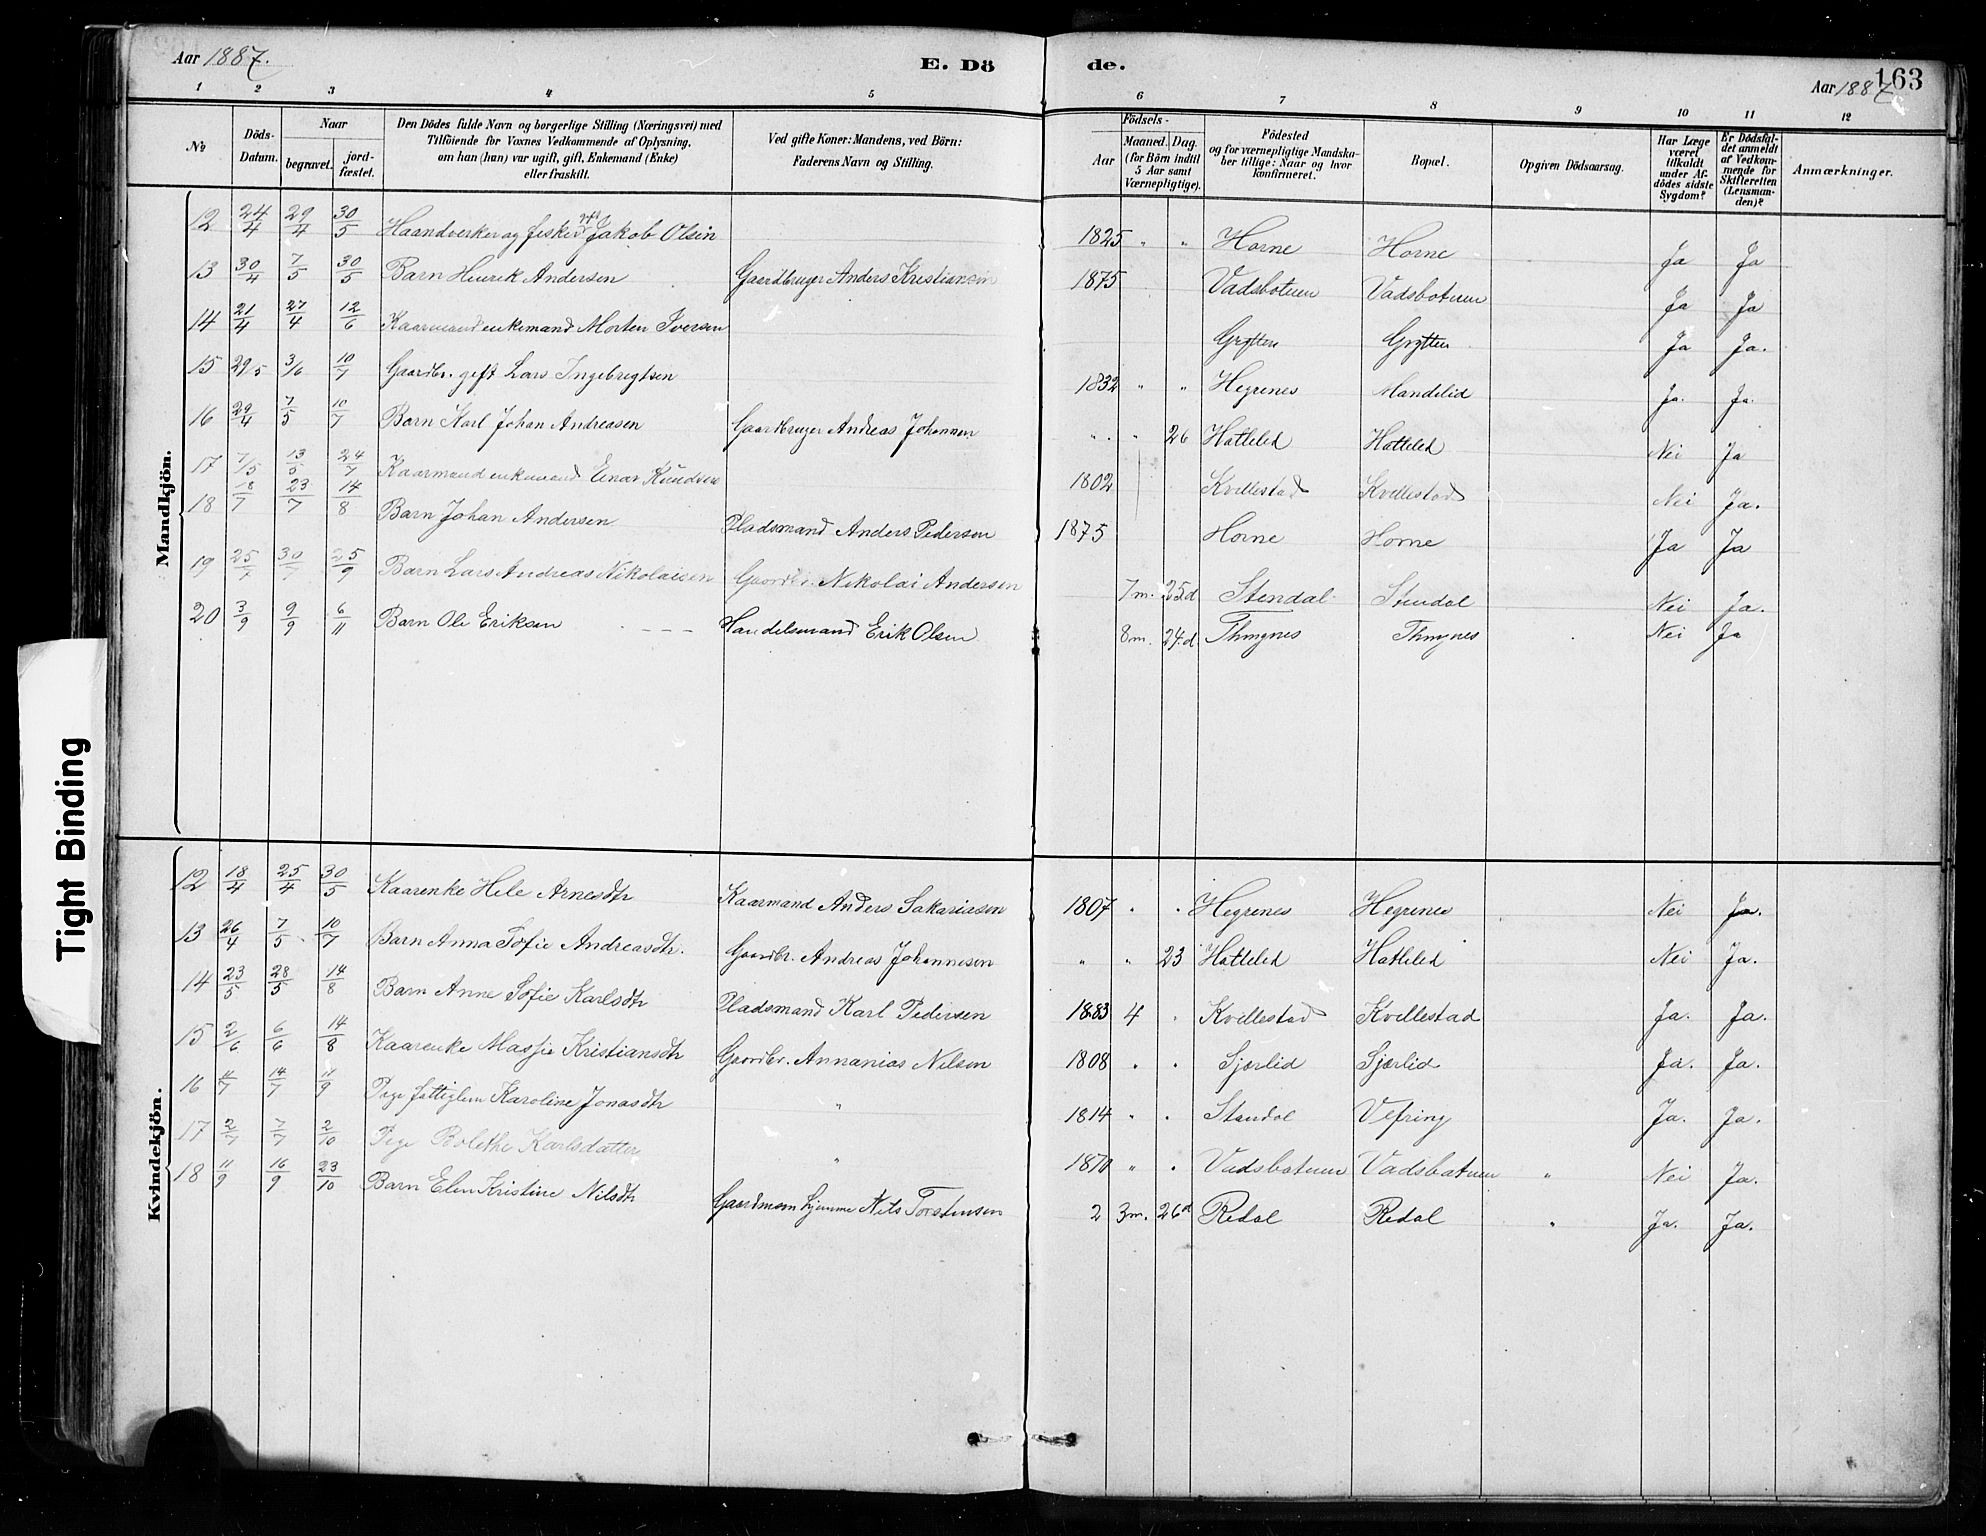 Aar 1887.
E. Dö
de.
Aar 1887
163
1 2 3 4 5 6 7 8 9 10 11 12
№
Döds-Datum.
Naar
begravet.
jord-fæstet.
Den Dödes fulde Navn og borgerlige Stilling (Næringsvei) med
Tilföiende for Voxnes Vedkommende af Oplysning,
om han (hun) var ugift, gift, Enkemand (Enke)
eller fraskilt.
Ved gifte Koner: Mandens, ved Börn:
Faderens Navn og Stilling.
Födsels-
Aar
Maaned. Dag.
(for Börn indtil
5 Aar samt
Værnepligtige).
Födested
og for værnepligtige Mandska-
ber tillige: Naar og hvor
konfirmeret.
Bopæl.
Opgiven Dödsaarsag.
Har Læge
været
tilkaldt
under Af-
dödes sidste
Sygdom?
Er Dödsfal-
det anmeldt
af Vedkom-
mende for
Skifteretten
(Lensman-
den)?
Anmærkninger.
Mandkjön.
12 24/4 29/4 30/5 Haandverker og fisker gift Jakob Olsen 1825 " " Horne Horne Ja Ja
13 30/4 7/5 30/5 Barn Henrik Andersen Gaardbruger Anders Kristiansen 1875 Vadsbotnen Vadsbotnen Ja Ja
14 21/4 27/4 12/6 Kaarmand enkemand Morten Iversen Grytten Grytten Ja Ja.
15 29/5 3/6 10/7 Gaardbr. gift Lars Ingebrigtsen 1832 " " Hegrenes Mandelid Ja. Ja.
16 29/4 7/5 10/7 Barn Karl Johan Andreasen Gaardbruger Andreas Johannsen " " 26 Hatleled Hatleled Nei Ja
17 7/5 13/5 24/7 Kaarmand enkemand Einar Knudsen 1802 Kvillestad Kvillestad Nei Ja.
18 18/7 23/7 14/8 Barn Johan Andersen Pladsmand Anders Pedersen 1875 Horne Horne Ja Ja
19 25/7 30/7 25/9 Barn Lars Andreas Nikolaisen Gaardbr. Nikolai Andersen 7m. 25d Stendal Stendal Nei Ja.
20 3/9 9/9 6/11 Barn Ole Eriksen Handelsmand Erik Olsen 8m. 24.d Thingnes Thingnes Nei Ja
Kvindekjön.
12 18/4 25/4 30/5 Kaarenke Hele Arnesdtr Kaarmand Anders Sakariasen 1807 " " Hegrenes Hegrenes Nei Ja.
13 26/4 7/5 10/7 Barn Anna Sofie Andreasdtr. Gaardbr. Andreas Johannesen " " 23 Hatleled Hatleled Nei Ja.
14 23/5 28/5 14/8 Barn Anne Sofie Karlsdtr Pladsmand Karl Pedersen 1883 4 " Kvillestad Kvillestad Ja. Ja.
15 2/6 6/6 14/8 Kaarenke Kristiansdtr Gaardbr. Annanias Nilsen 1808 " " Sjørlid Sjørlid Ja. Ja.
16 11/7 14/7 11/9 Pige fattiglem Karoline Jonasdtr " 1814 " " Standal Vefring Ja. Ja.
17 2/7 7/7 2/10 Pige Bolethe Karlsdatter " 1870 " " Vadsbotnen Vadsbotnen " Nei Ja.
18 11/9 16/9 23/10 Barn Elen Kristine Nilsdtr Nils Torstensen 2 3m. 26d Redal Redal " Ja. Ja.
Tight Binding